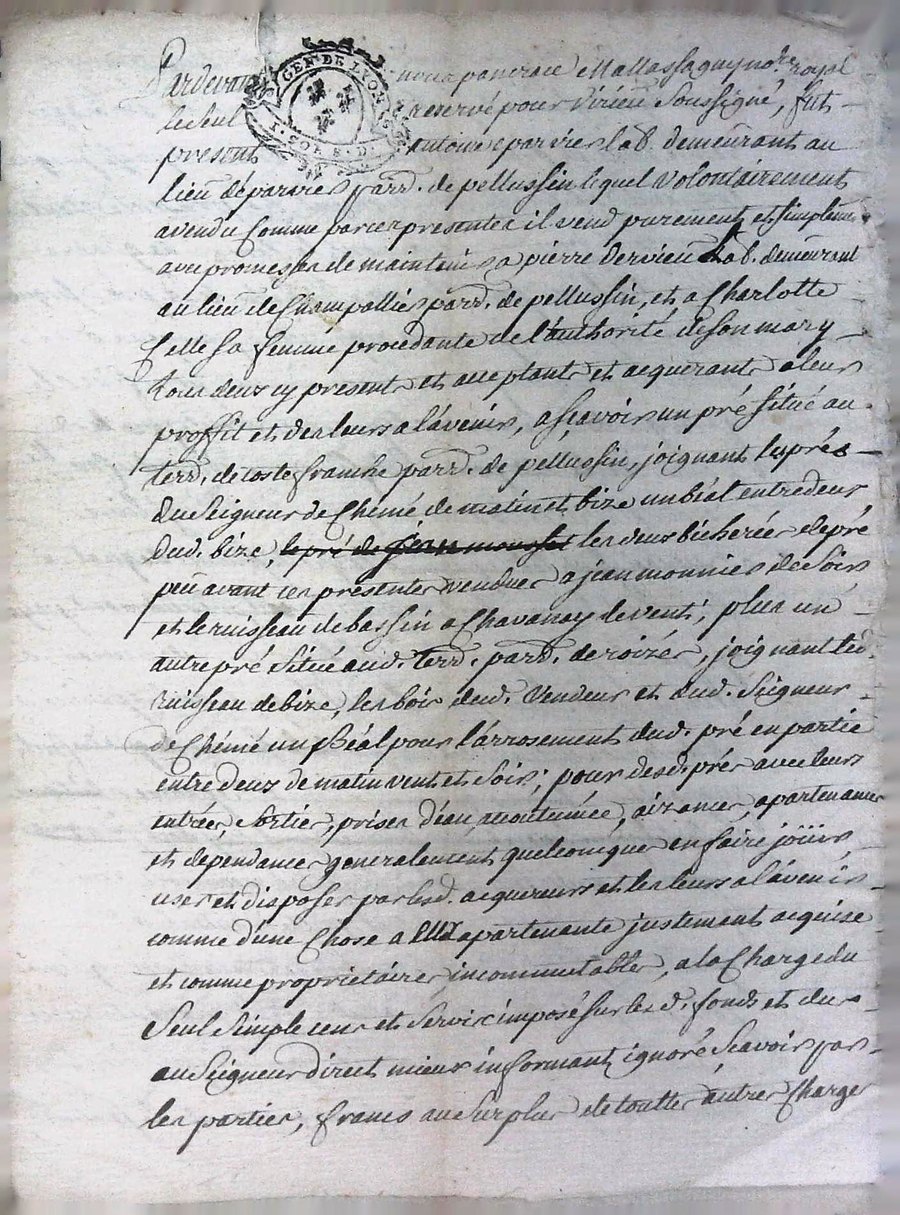 Pardevant nous pancrace Mallassagny no.re royal
GEN. DE LYON
le seul reservé pour Virieu soussigné, fut
present antoine parvie lab. demeurant au
lieu de parvie parr. de pellussin lequel volontairement
a vendu comme par ces presentes il vend purement et simplement
avec promesses de maintenir a pierre dervieu Lab. demeurant
au lieu de Champallies parr. de pellussin, et a Charlotte
Celle sa femme procedante de l'authorité de son mary
tous deux icy presents et acceptants et acquerants a leurs
proffit et des leurs a l'avenir, a sçavoir un pré situé au
terr. de coste franche parr. de pellussin, joignant les prés
du Seigneur de Chémé de matin et bize un béal entredeux
dud. bize, le pré de jean mousset les deux bicherées de pré
peu avant ces presentes vendues a jean monnier de soir
et le ruisseau de bassin a Chavanay de vent; plus un
autre pré situé aud. terr. parr. de roizey, joignant led.
ruisseau de bize, les bois dud. Vendeur et dud. Seigneur
de Chémé un béal pour l'arrosement dud. pré en partie
entre deux de matin vent et soir; pour desd. prés avec leurs
entrées, sorties, prises d'eau, accoutumée, aizances, apartenances
et dependances generalement quelconques en faire joüir
user et disposer par lesd. acquereurs et les leurs a l'avenir
comme d'une Chose a EUX apartenante justement acquise
et comme proprietaires incommutables, a la Charge du
seul simple cens et servis imposé sur lesd. fonds et dus
au Seigneur direct mieux informant, ignoré sçavoir par
les parties, francs au surplus de toutes autres Charges